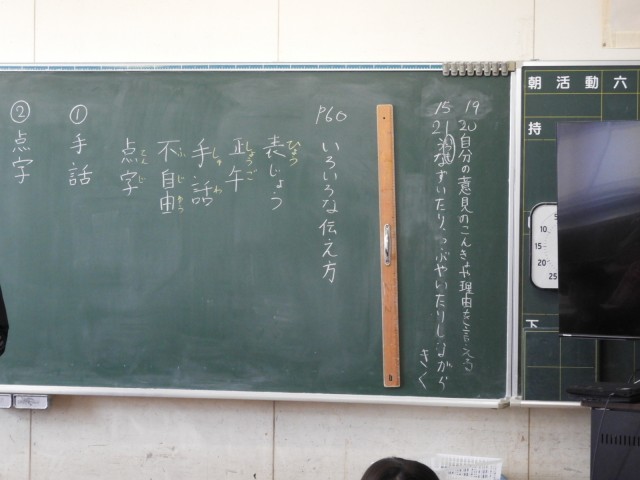 朝活動六
持
下
5
10
15
20
25
19
20 自分の意見のこんきょや理由を言える
15
21 うなずいたり、つぶやいたりしながら
きく
P60
いろいろな伝え方
表じょう
ひょう
正午
しょうご
手話
しゅわ
不自由
ふじゆう
点字
てんじ
① 手話
② 点字